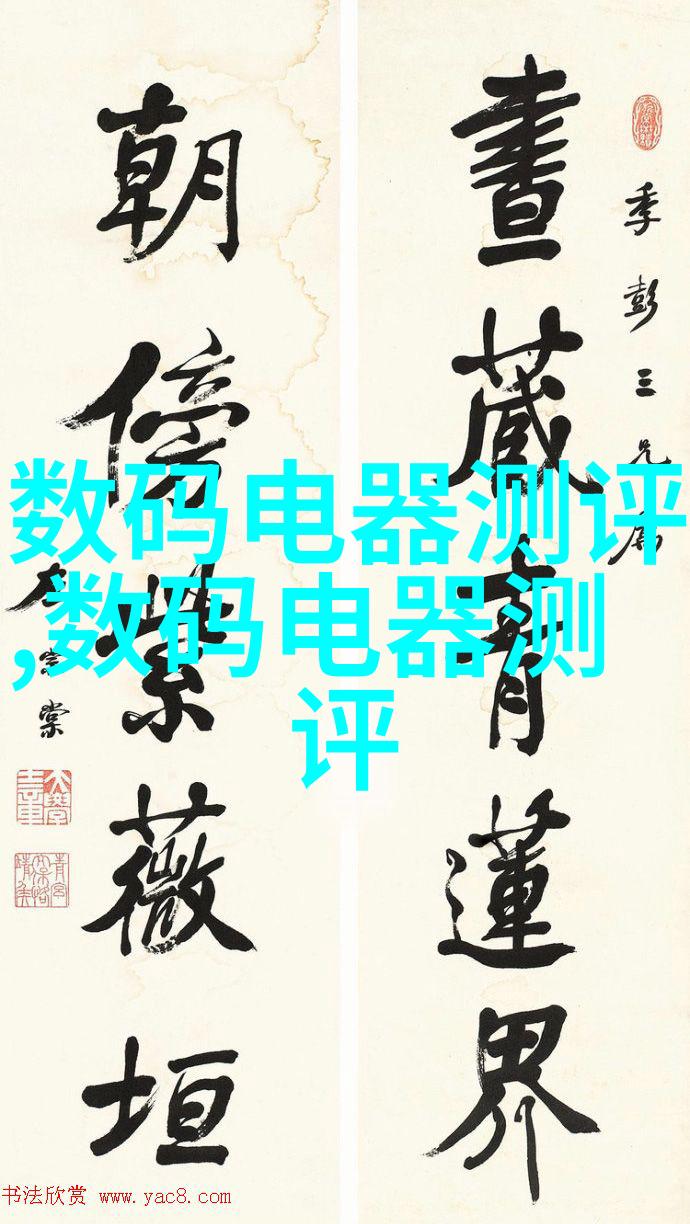 季彭三兄屬
晝藏青蓮界
朝傍紫薇垣
左宗棠
数码电器测评
,数码电器测
评
书法欣赏 www.yac8.com